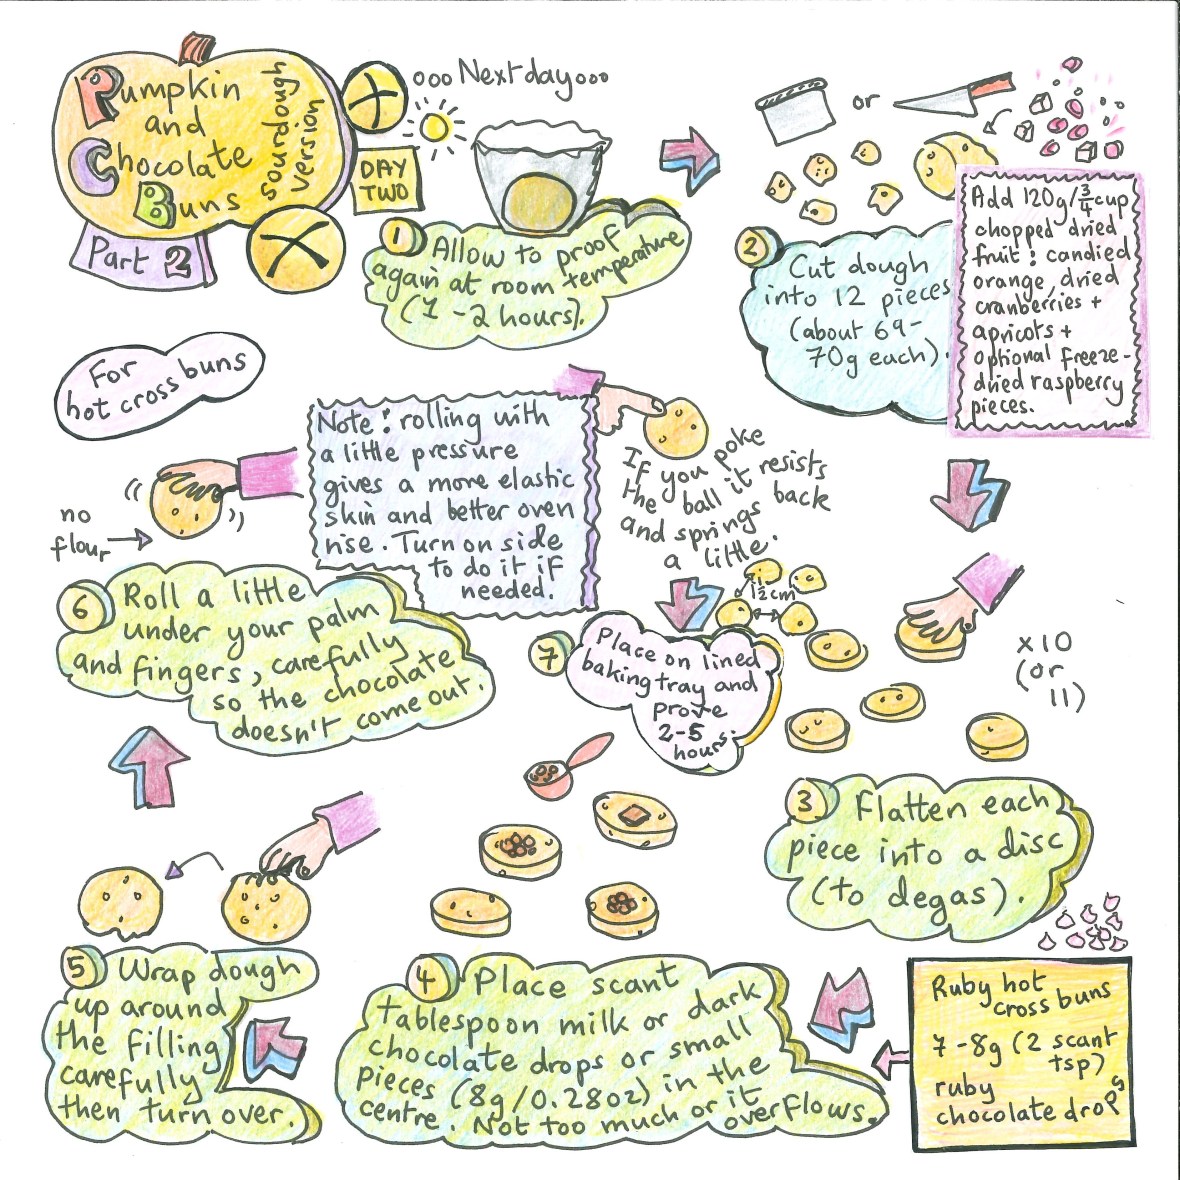 Pumpkin
and
Chocolate
Buns
sourdough
version
Part 2
DAY
TWO
ooo Next day ooo
1 Allow to proof
again at room temperature
(1-2 hours).
or
2
Cut dough
into 12 pieces
(about 69-
70g each).
Add 120g/3/4 cup
chopped dried
fruit: candied
orange, dried
cranberries +
apricots +
optional freeze-
dried raspberry
pieces.
x10
(or
11)
3 Flatten each
piece into a disc
(to degas).
Ruby hot
cross buns
7-8g (2 scant
tsp)
ruby
chocolate drops
4 Place scant
tablespoon milk or dark
chocolate drops or small
pieces (8g/0.28oz) in the
centre. Not too much or it
overflows.
5 Wrap dough
up around
the filling
carefully
then turn over.
6 Roll a little
under your palm
and fingers, carefully
so the chocolate
doesn't come out.
no
flour
For
hot cross buns
Note: rolling with
a little pressure
gives a more elastic
skin and better oven
rise. Turn on side
to do it if
needed.
If you poke
the ball it resists
and springs back
a little.
1/2 cm
7
Place on lined
baking tray and
prove
2-5
hours.